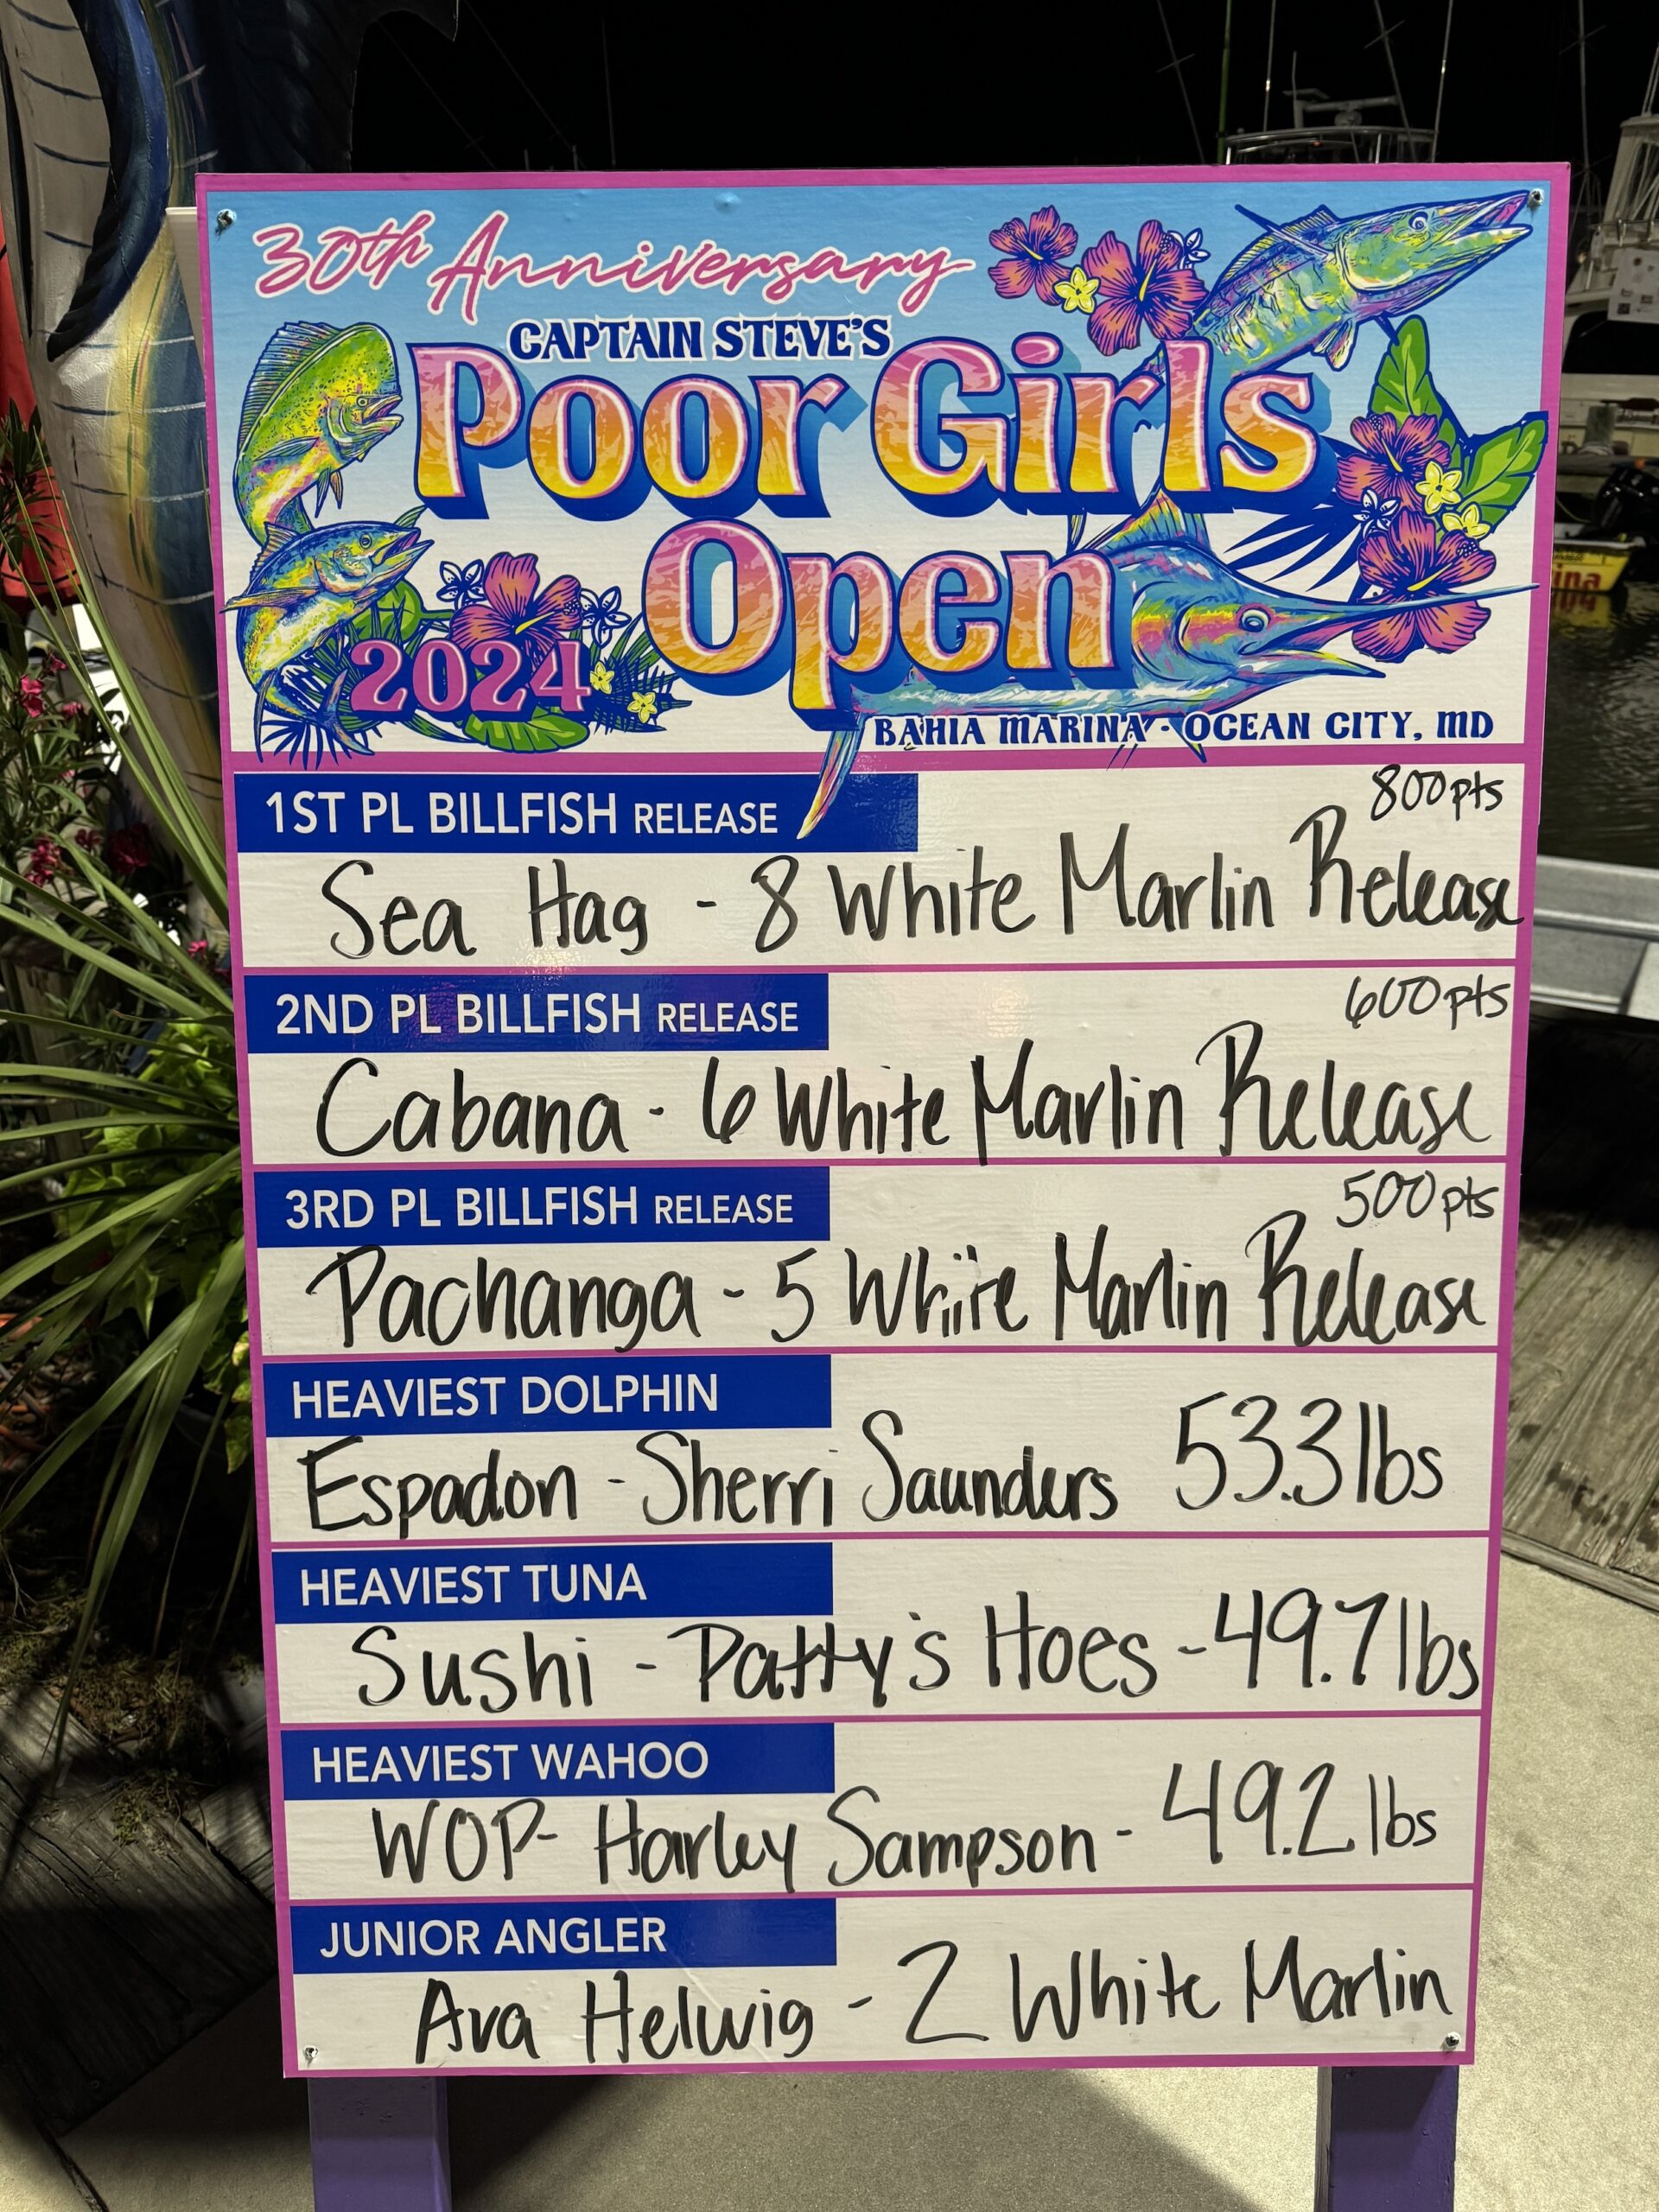 30th Anniversary
CAPTAIN STEVE'S
Poor Girls
Open
2024
BAHIA MARINA - OCEAN CITY, MD
1ST PL BILLFISH RELEASE 800pts
Sea Hag - 8 White Marlin Release
2ND PL BILLFISH RELEASE 600pts
Cabana - 6 White Marlin Release
3RD PL BILLFISH RELEASE 500pts
Pachanga - 5 White Marlin Release
HEAVIEST DOLPHIN
Espadon - Sherri Saunders 53.3 lbs
HEAVIEST TUNA
Sushi - Patty's Hoes - 49.7 lbs
HEAVIEST WAHOO
WOP - Harley Sampson - 49.2 lbs
JUNIOR ANGLER
Ava Helwig - 2 White Marlin